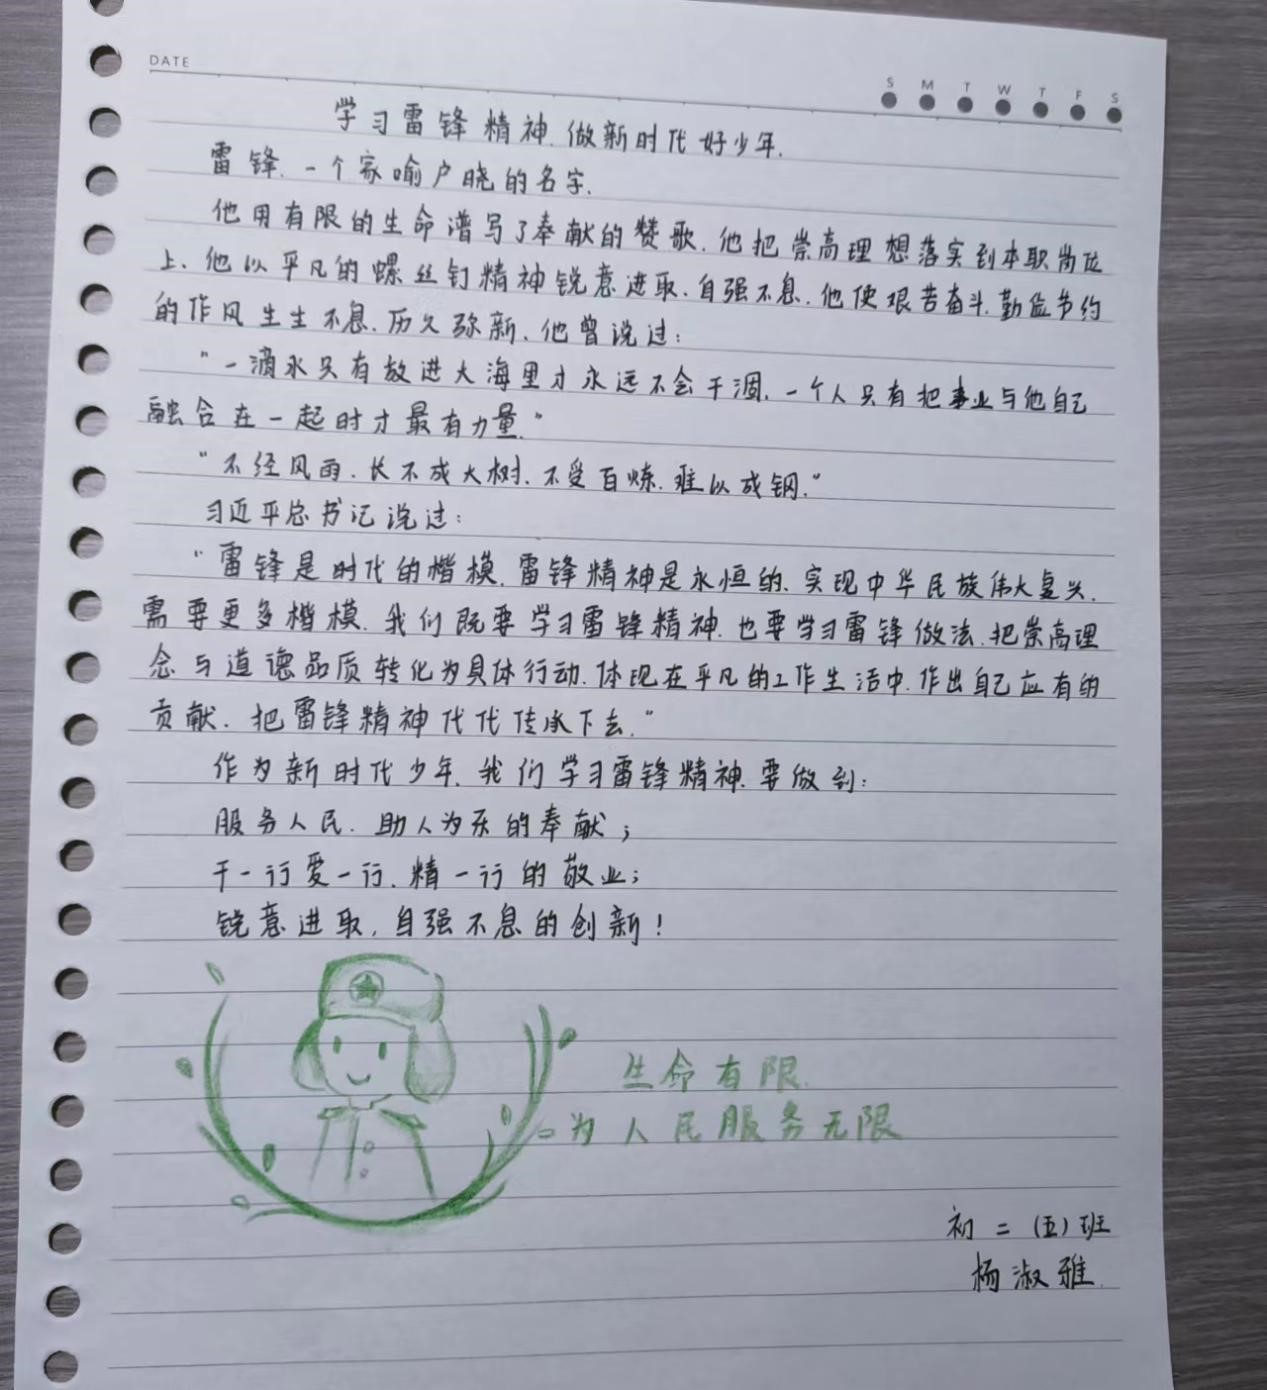 DATE
S M T W T F S
学习雷锋精神.做新时代好少年.
雷锋.一个家喻户晓的名字.
他用有限的生命谱写了奉献的赞歌.他把崇高理想落实到本职岗位
上、他以平凡的螺丝钉精神锐意进取.自强不息.他使艰苦奋斗.勤俭节约
的作风生生不息.历久弥新.他曾说过:
"一滴水只有放进大海里才永远不会干涸.一个人只有把事业与他自己
融合在一起时才最有力量."
"不经风雨.长不成大树.不受百炼.难以成钢."
习近平总书记说过:
"雷锋是时代的楷模.雷锋精神是永恒的.实现中华民族伟大复兴.
需要更多楷模.我们既要学习雷锋精神.也要学习雷锋做法.把崇高理
念与道德品质转化为具体行动.体现在平凡的工作生活中.作出自己应有的
贡献.把雷锋精神代代传承下去."
作为新时代少年.我们学习雷锋精神.要做到:
服务人民.助人为乐的奉献;
干一行爱一行.精一行的敬业;
锐意进取,自强不息的创新!
生命有限.
为人民服务无限
初二(五)班
杨淑雅.